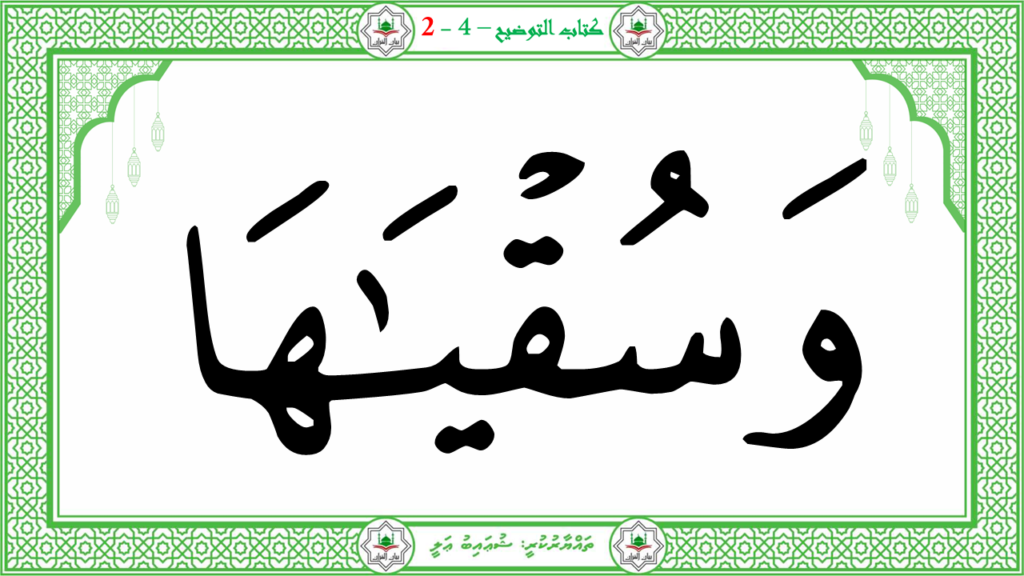 كتاب التوضيح – 4 - 2
وَسُقْيَـٰهَا
ތައްޔާރުކުރީ: ޝުޢައިބު ޢަލީ